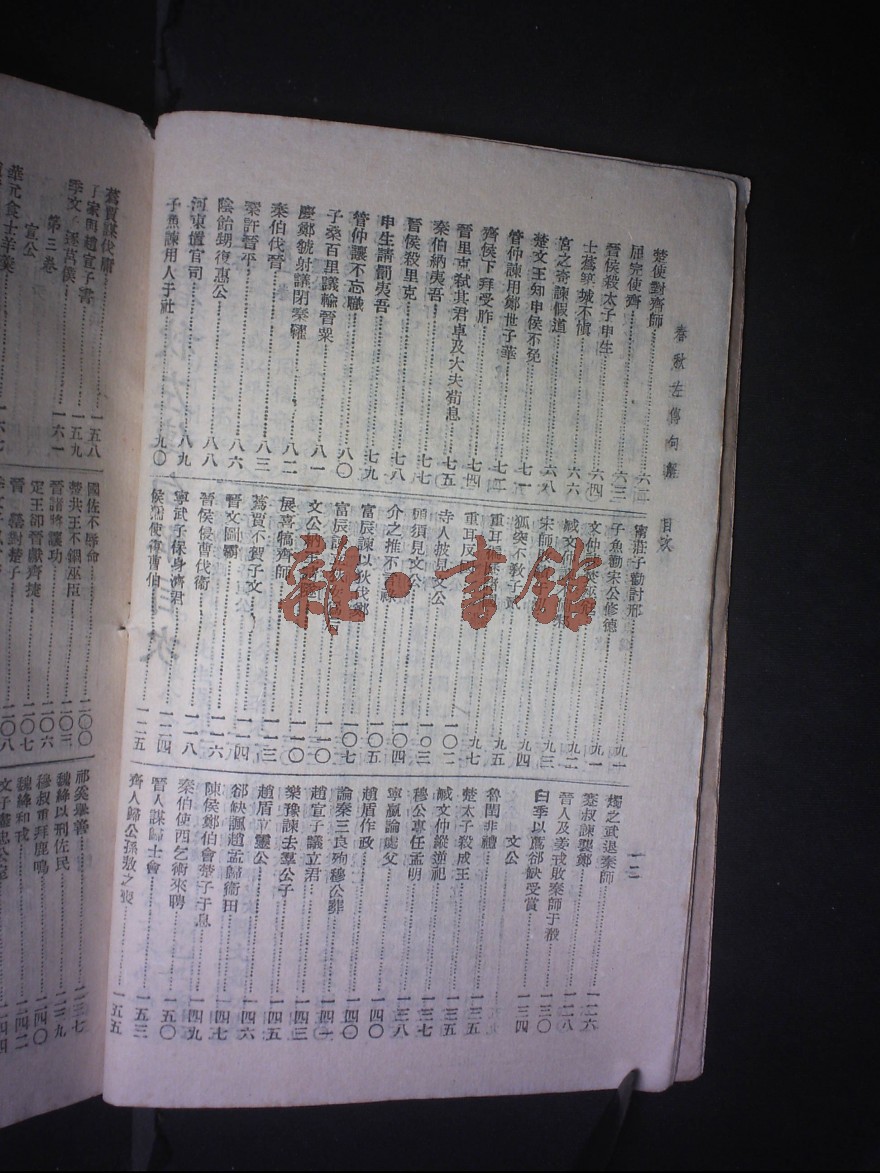 春秋左傳句解 目次 一二
楚使對齊師……六二
屈完使齊……六三
晉侯殺太子申生……六四
士蒍築城不愼……六六
宮之奇諫假道……六八
楚文王知申侯不免……七一
管仲諫用鄭世子華……七二
齊侯下拜受胙……七四
晉里克弒其君卓及大夫荀息……七五
秦伯納夷吾……七七
晉侯殺里克……七八
申生請罰夷吾……七九
管仲讓不忘職……八〇
子桑百里議輸晉粟……八一
慶鄭虢射議閉秦糴……八二
秦伯伐晉……八三
秦許晉平……八六
陰飴甥復惠公……八八
河東置官司……八九
子魚諫用人于社……九〇
甯莊子勸討邢……九一
子魚勸宋公修德……九一
臧文仲……九二
宋師……九三
狐突不教子貳……九四
重耳……九五
重耳反……九七
寺人披見文公……一〇二
頭須見文公……一〇三
介之推不……祿……一〇四
富辰諫以狄伐鄭……一〇五
富辰……一〇七
文公……一一〇
展喜犒齊師……一一〇
蒍賈不賀子文……一一三
晉文圖霸……一一四
晉侯侵曹伐衞……一一六
甯武子保身濟君……一二四
侯獳使復曹伯……一二五
燭之武退秦師……一二六
蹇叔諫襲鄭……一二八
晉人及姜戎敗秦師于殽……一三〇
臼季以薦郤缺受賞……一三四
文公
魯閏非禮……
楚太子殺成王……一三五
臧文仲縱逆祀……一三五
穆公專任孟明……一三七
甯嬴論處父……一三八
趙盾作政……一四〇
論秦三良殉穆公葬……一四〇
趙宣子議立君……一四一
樂豫諫去羣公子……一四三
趙盾立靈公……一四四
郤缺諷趙孟歸衞田……一四六
陳侯鄭伯會楚子于息……一四七
秦伯使西乞術來聘……一四九
晉人謀歸士會……一五〇
齊人歸公孫敖之喪……一五三
一五五
蒍賈謀伐庸……一五八
子家與趙宣子書……一五九
季文子逐莒僕……一六一
第三卷
宣公
華元食士羊羹……一六七
國佐不辱命……二〇〇
楚共王不錮巫臣……二〇三
晉諸將讓功……二〇六
定王卻晉獻齊捷……二〇七
晉 罃對楚子……二〇八
祁奚舉善……二三七
魏絳以刑佐民……二三九
穆叔重拜鹿鳴……二四〇
魏絳和戎……二四二
二四四
雜·書館